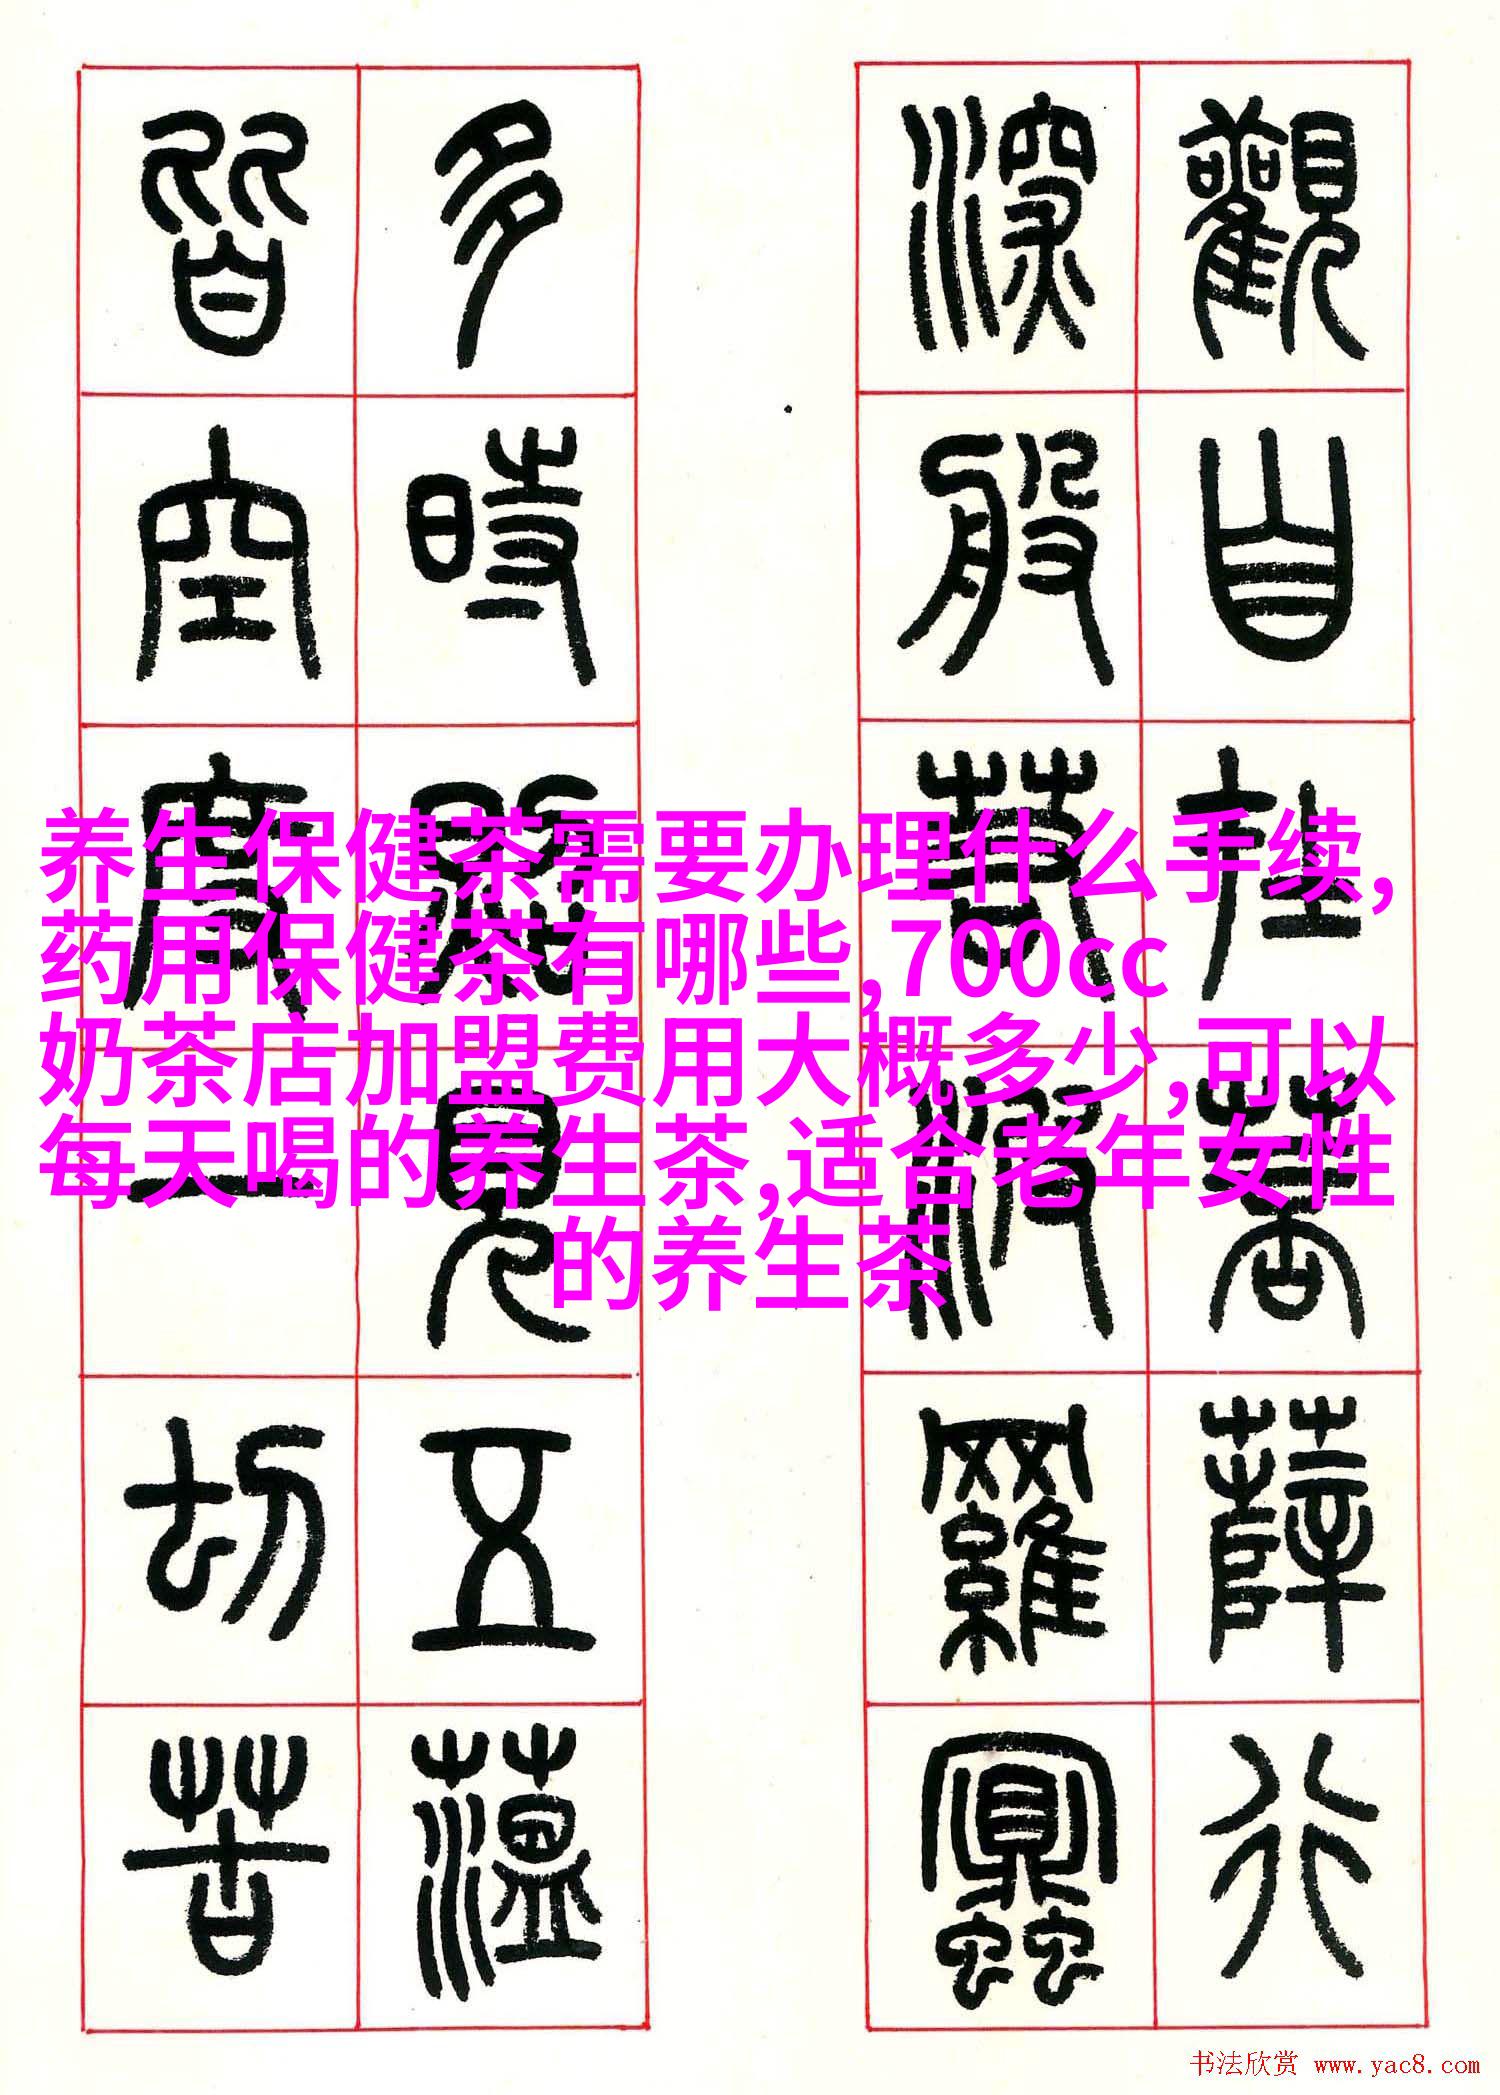 觀自在菩薩行
深般若波羅蜜
多時照見五蘊
皆空度一切苦
养生保健茶需要办理什么手续,
药用保健茶有哪些,700cc
奶茶店加盟费用大概多少,可以
每天喝的养生茶,适合老年女性
的养生茶
书法欣赏 www.yac8.com